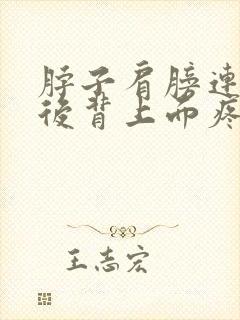 脖子肩膀连
后背上面疼
王志宏